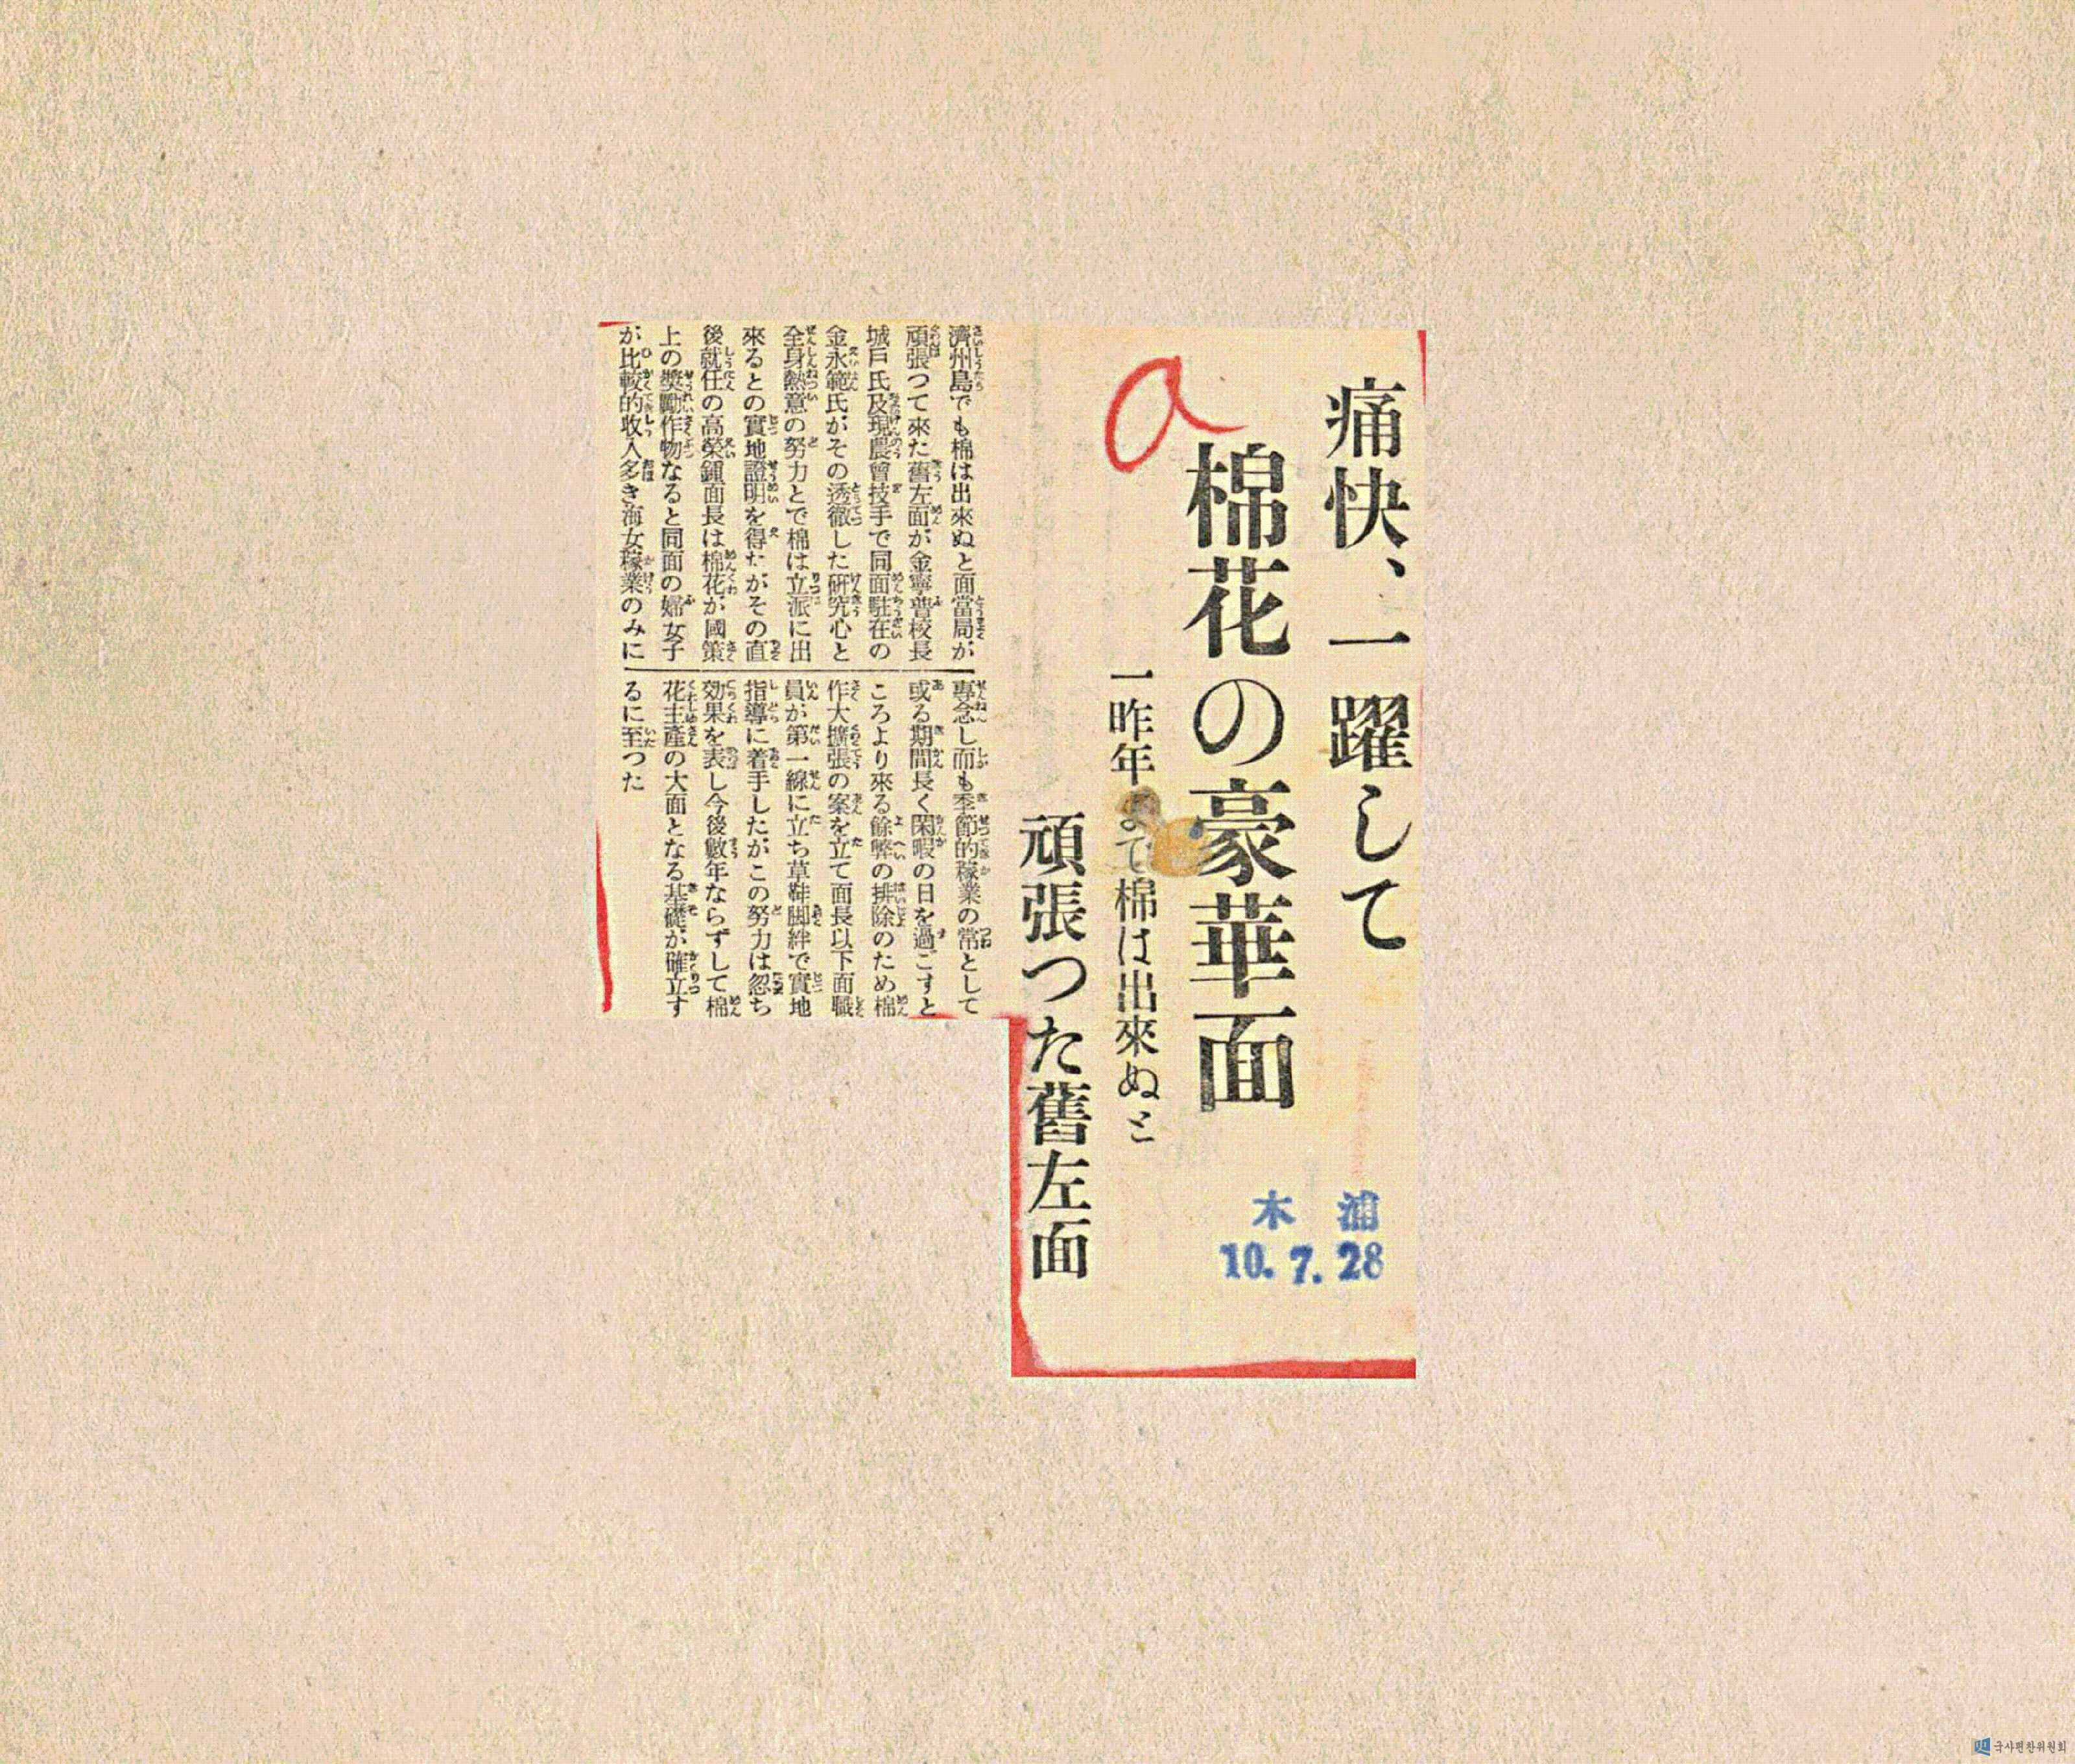 痛快、一躍して
棉花の豪華面
一昨年まで棉は出來ぬと
頑張つた舊左面
木浦
10.7.28
a
濟州島でも棉は出來ぬと面當局が
頑張つて來た舊左面が金寧普校長
城戸氏及現農會技手で同面駐在の
金永範氏がその透徹した研究心と
全身熱意の努力とで棉は立派に出
來るとの實地證明を得たがその直
後就任の高榮鍾面長は棉花が國策
上の奬勵作物なると同面の婦女子
が比較的收入多き海女稼業のみに
專念し而も季節的稼業の常として
或る期間長く閑暇の日を過ごすと
ころより來る餘弊の排除のため棉
作大擴張の案を立て面長以下面職
員が第一線に立ち草鞋脚絆で實地
指導に着手したがこの努力は忽ち
効果を表し今後數年ならずして棉
花主產の大面となる基礎が確立す
るに至つた
국사편찬위원회